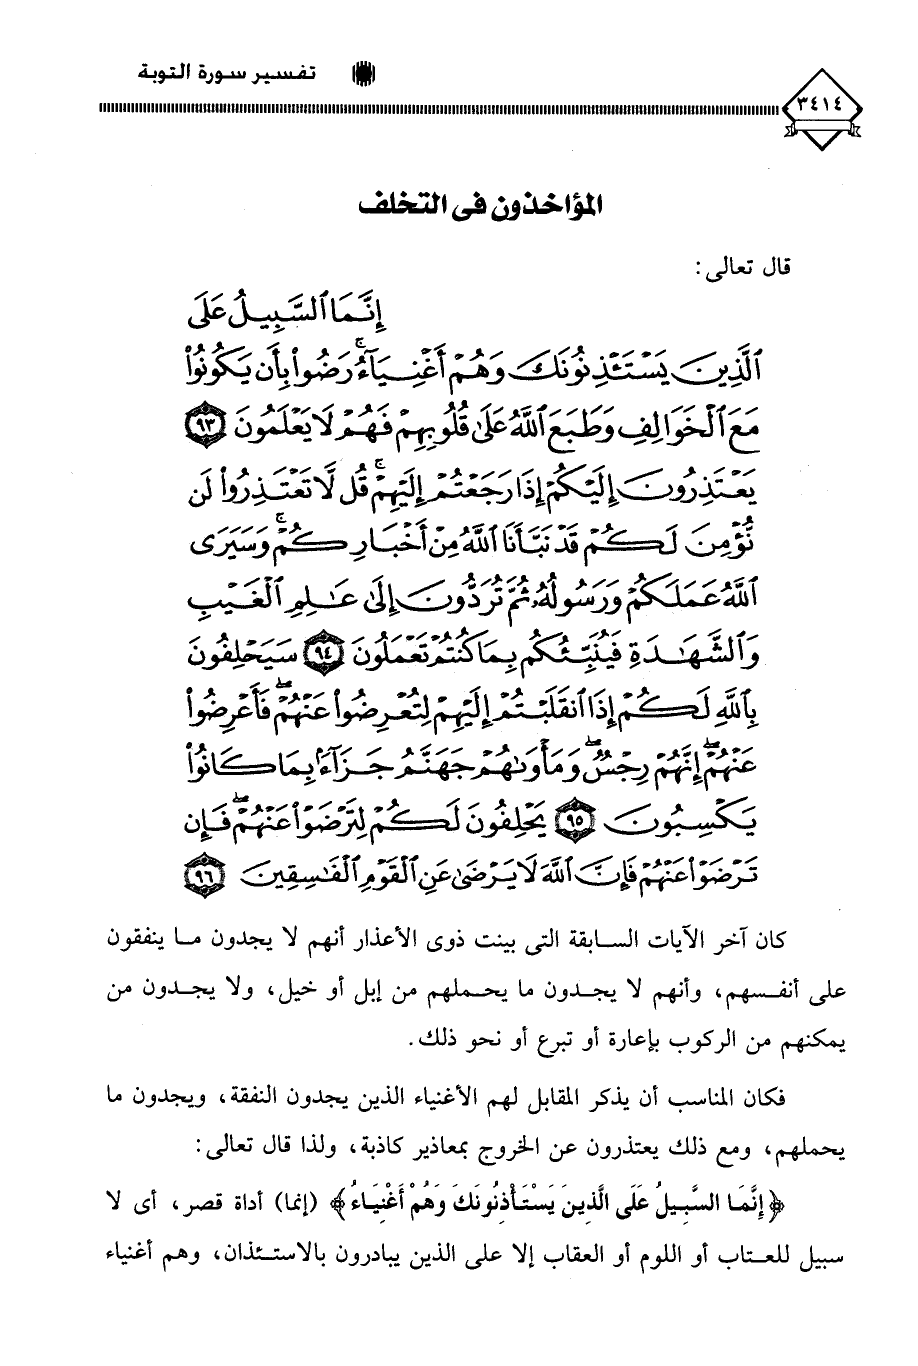 تفسير سورة التوبة
٣٤١٤
المؤاخذون فى التخلف
قال تعالى:
إِنَّمَا السَّبِيلُ عَلَى
الَّذِينَ يَسْتَـْٔذِنُونَكَ وَهُمْ أَغْنِيَآءُ ۚ رَضُوا۟ بِأَن يَكُونُوا۟
مَعَ الْخَوَالِفِ وَطَبَعَ اللَّهُ عَلَىٰ قُلُوبِهِمْ فَهُمْ لَا يَعْلَمُونَ ٩٣
يَعْتَذِرُونَ إِلَيْكُمْ إِذَا رَجَعْتُمْ إِلَيْهِمْ ۚ قُل لَّا تَعْتَذِرُوا۟ لَن
نُّؤْمِنَ لَكُمْ قَدْ نَبَّأَنَا اللَّهُ مِنْ أَخْبَارِكُمْ ۚ وَسَيَرَى
اللَّهُ عَمَلَكُمْ وَرَسُولُهُۥ ثُمَّ تُرَدُّونَ إِلَىٰ عَـٰلِمِ الْغَيْبِ
وَالشَّهَـٰدَةِ فَيُنَبِّئُكُم بِمَا كُنتُمْ تَعْمَلُونَ ٩٤ سَيَحْلِفُونَ
بِاللَّهِ لَكُمْ إِذَا انقَلَبْتُمْ إِلَيْهِمْ لِتُعْرِضُوا۟ عَنْهُمْ ۖ فَأَعْرِضُوا۟
عَنْهُمْ ۖ إِنَّهُمْ رِجْسٌ ۖ وَمَأْوَىٰهُمْ جَهَنَّمُ جَزَآءًۢ بِمَا كَانُوا۟
يَكْسِبُونَ ٩٥ يَحْلِفُونَ لَكُمْ لِتَرْضَوْا۟ عَنْهُمْ ۖ فَإِن
تَرْضَوْا۟ عَنْهُمْ فَإِنَّ اللَّهَ لَا يَرْضَىٰ عَنِ الْقَوْمِ الْفَـٰسِقِينَ ٩٦
كان آخر الآيات السابقة التى بينت ذوى الأعذار أنهم لا يجدون ما ينفقون
على أنفسهم، وأنهم لا يجدون ما يحملهم من إبل أو خيل، ولا يجدون من
يمكنهم من الركوب بإعارة أو تبرع أو نحو ذلك.
فكان المناسب أن يذكر المقابل لهم الأغنياء الذين يجدون النفقة، ويجدون ما
يحملهم، ومع ذلك يعتذرون عن الخروج بمعاذير كاذبة، ولذا قال تعالى:
﴿إِنَّمَا السَّبِيلُ عَلَى الَّذِينَ يَسْتَأْذِنُونَكَ وَهُمْ أَغْنِيَاءُ﴾ (إنما) أداة قصر، أى لا
سبيل للعتاب أو اللوم أو العقاب إلا على الذين يبادرون بالاستئذان، وهم أغنياء